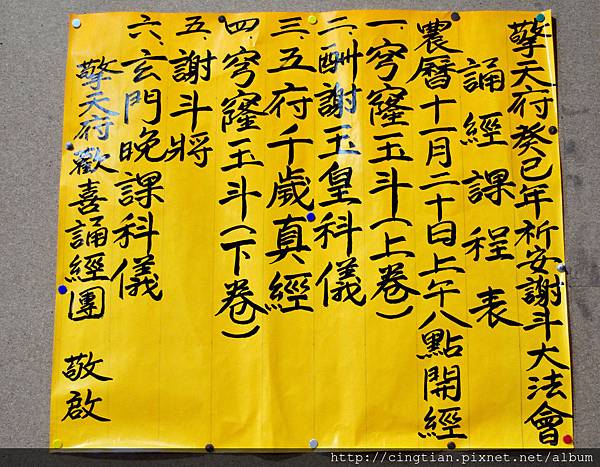 擎天府癸巳年祈安謝斗大法會
誦經課程表
農曆十一月二十日上午八點開經
一.穹窿玉斗(上卷)
二.酬謝玉皇科儀
三.五府千歲真經
四.穹窿玉斗(下卷)
五.謝斗將
六.玄門晚課科儀
擎天府歡喜誦經團 敬啟
http://cingtian.pixnet.net/album